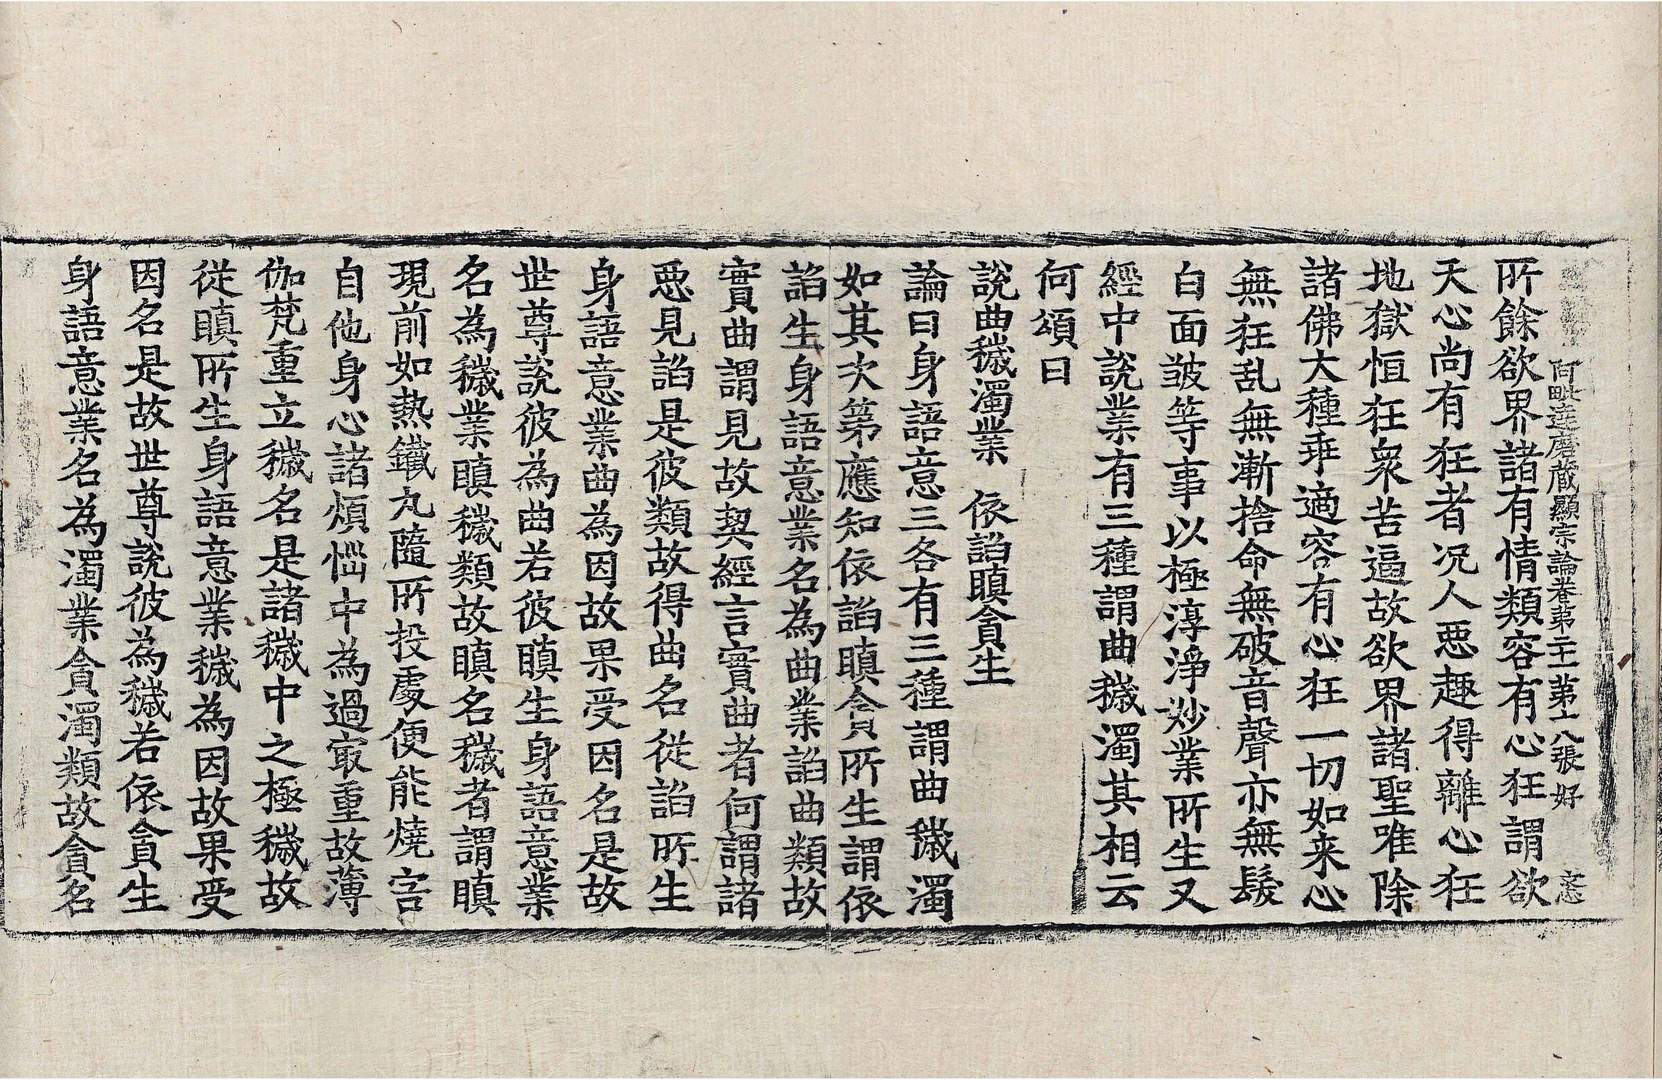 阿毗達磨藏顯宗論卷第二十二 第十八張 好
所餘欲界諸有情類容有心狂謂欲
天心尚有狂者況人惡趣得離心狂
地獄恒狂衆苦逼故欲界諸聖唯除
諸佛大種乖適容有心狂一切如来心
無狂乱無漸捨命無破音聲亦無髮
白面皺等事以極淳淨妙業所生又
經中說業有三種謂曲穢濁其相云
何頌曰
說曲穢濁業 依諂瞋貪生
論曰身語意三各有三種謂曲穢濁
如其次第應知依諂瞋貪所生謂依
諂生身語意業名為曲業諂曲類故
實曲謂見故契經言實曲者何謂諸
惡見諂是彼類故得曲名從諂所生
身語意業曲為因故果受因名是故
世尊說彼為曲若彼瞋生身語意業
名為穢業瞋穢類故瞋名穢者謂瞋
現前如熱鐵丸隨所投處便能燒害
自他身心諸煩惱中為過㝡重故薄
伽梵重立穢名是諸穢中之極穢故
從瞋所生身語意業穢為因故果受
因名是故世尊說彼為穢若依貪生
身語意業名為濁業貪濁類故貪名